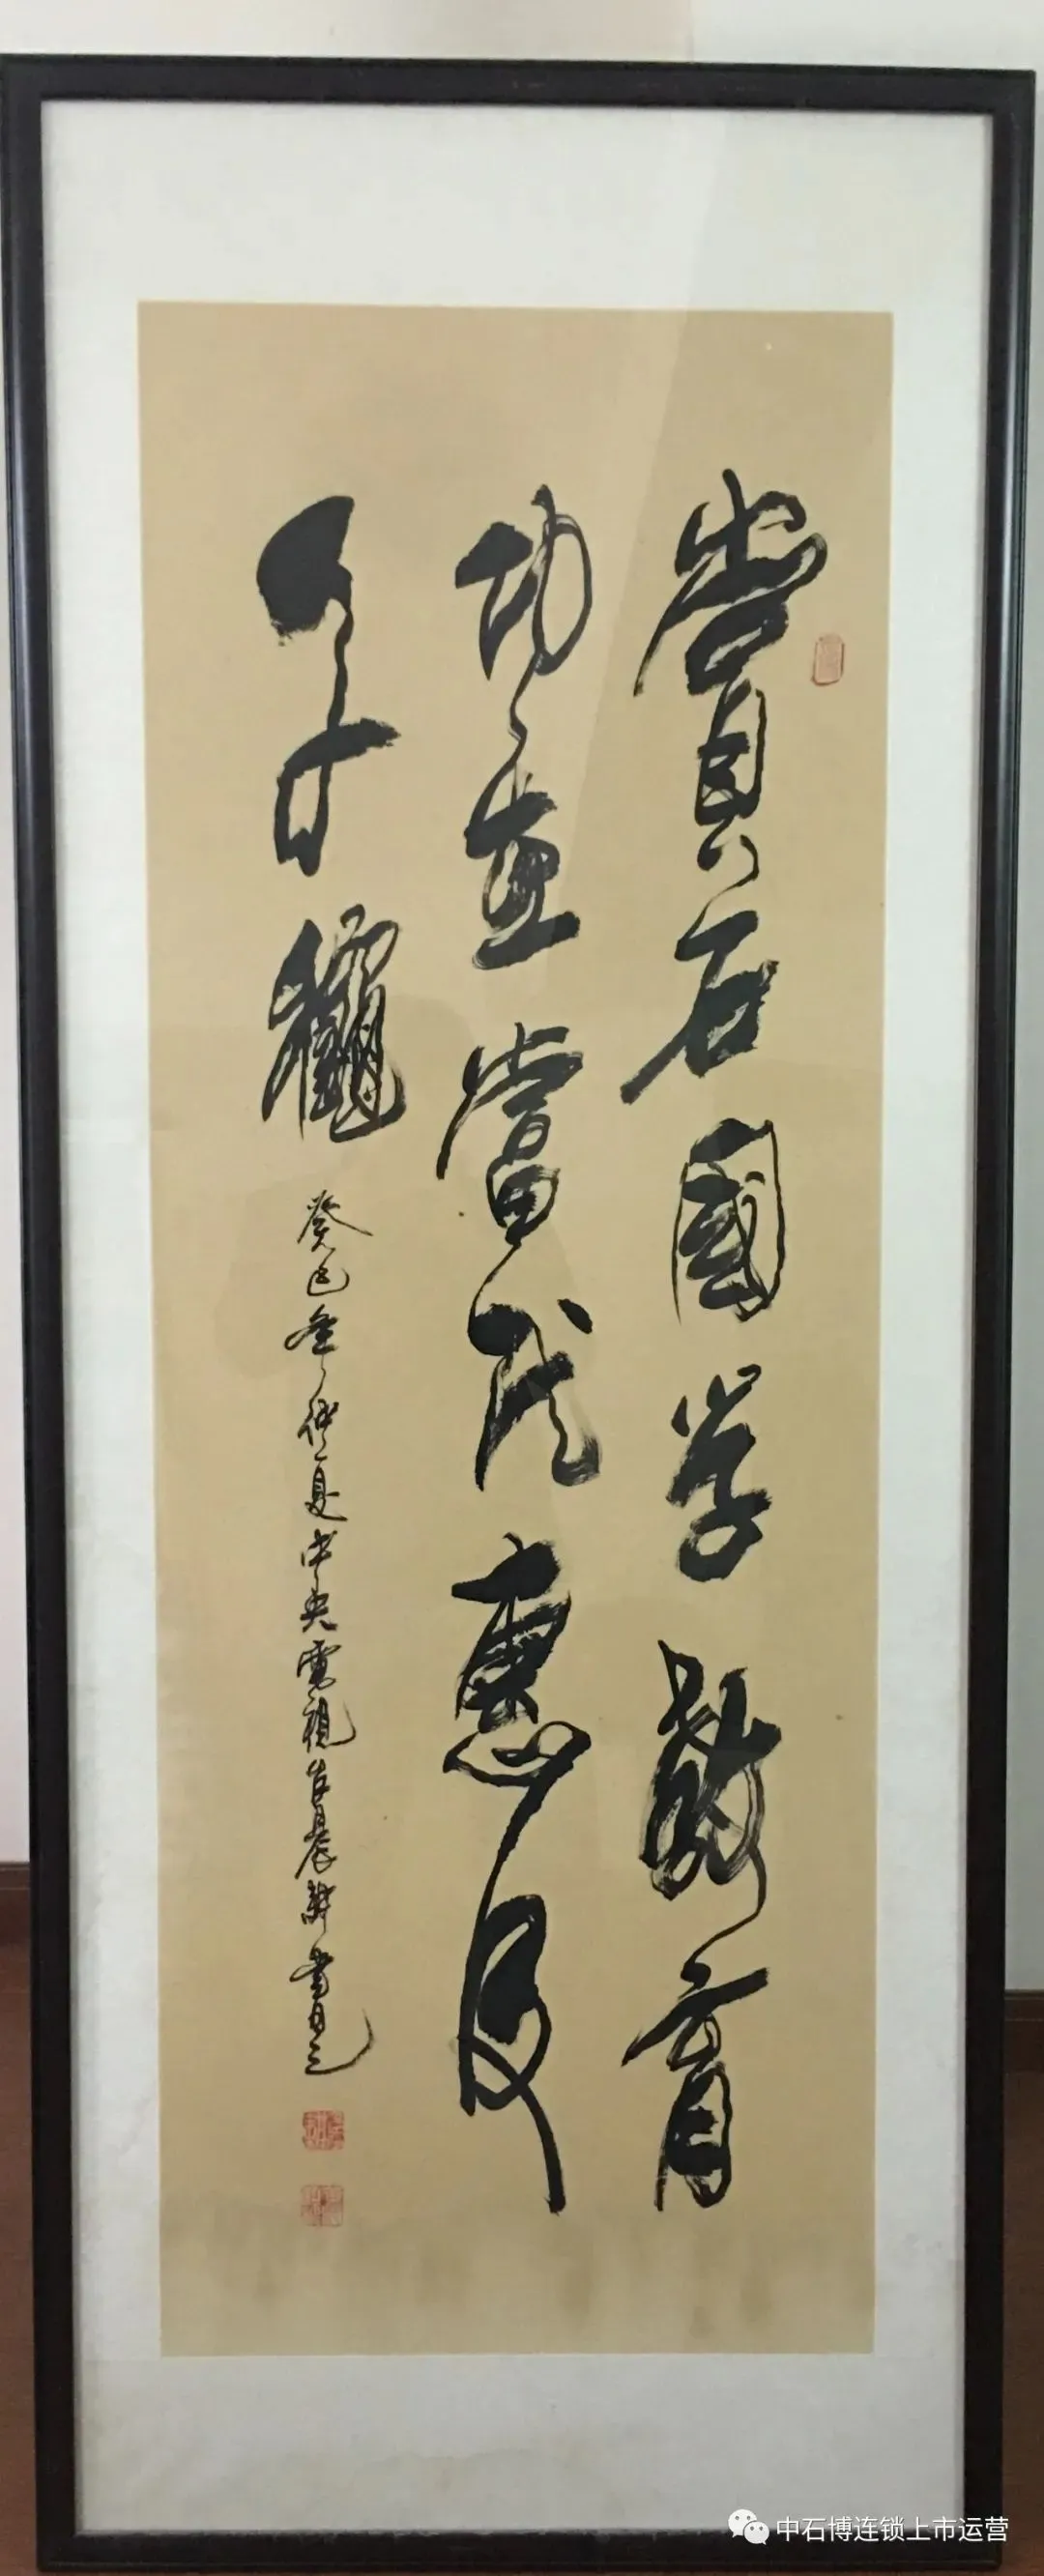 賞石國學教育
功在當代惠及
千龝
癸巳年仲夏中央電視台晨書之
中石博连锁上市运营